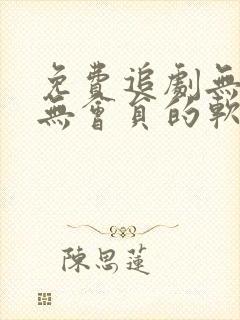 免費追劇無
無會員的軟
陳思蓮